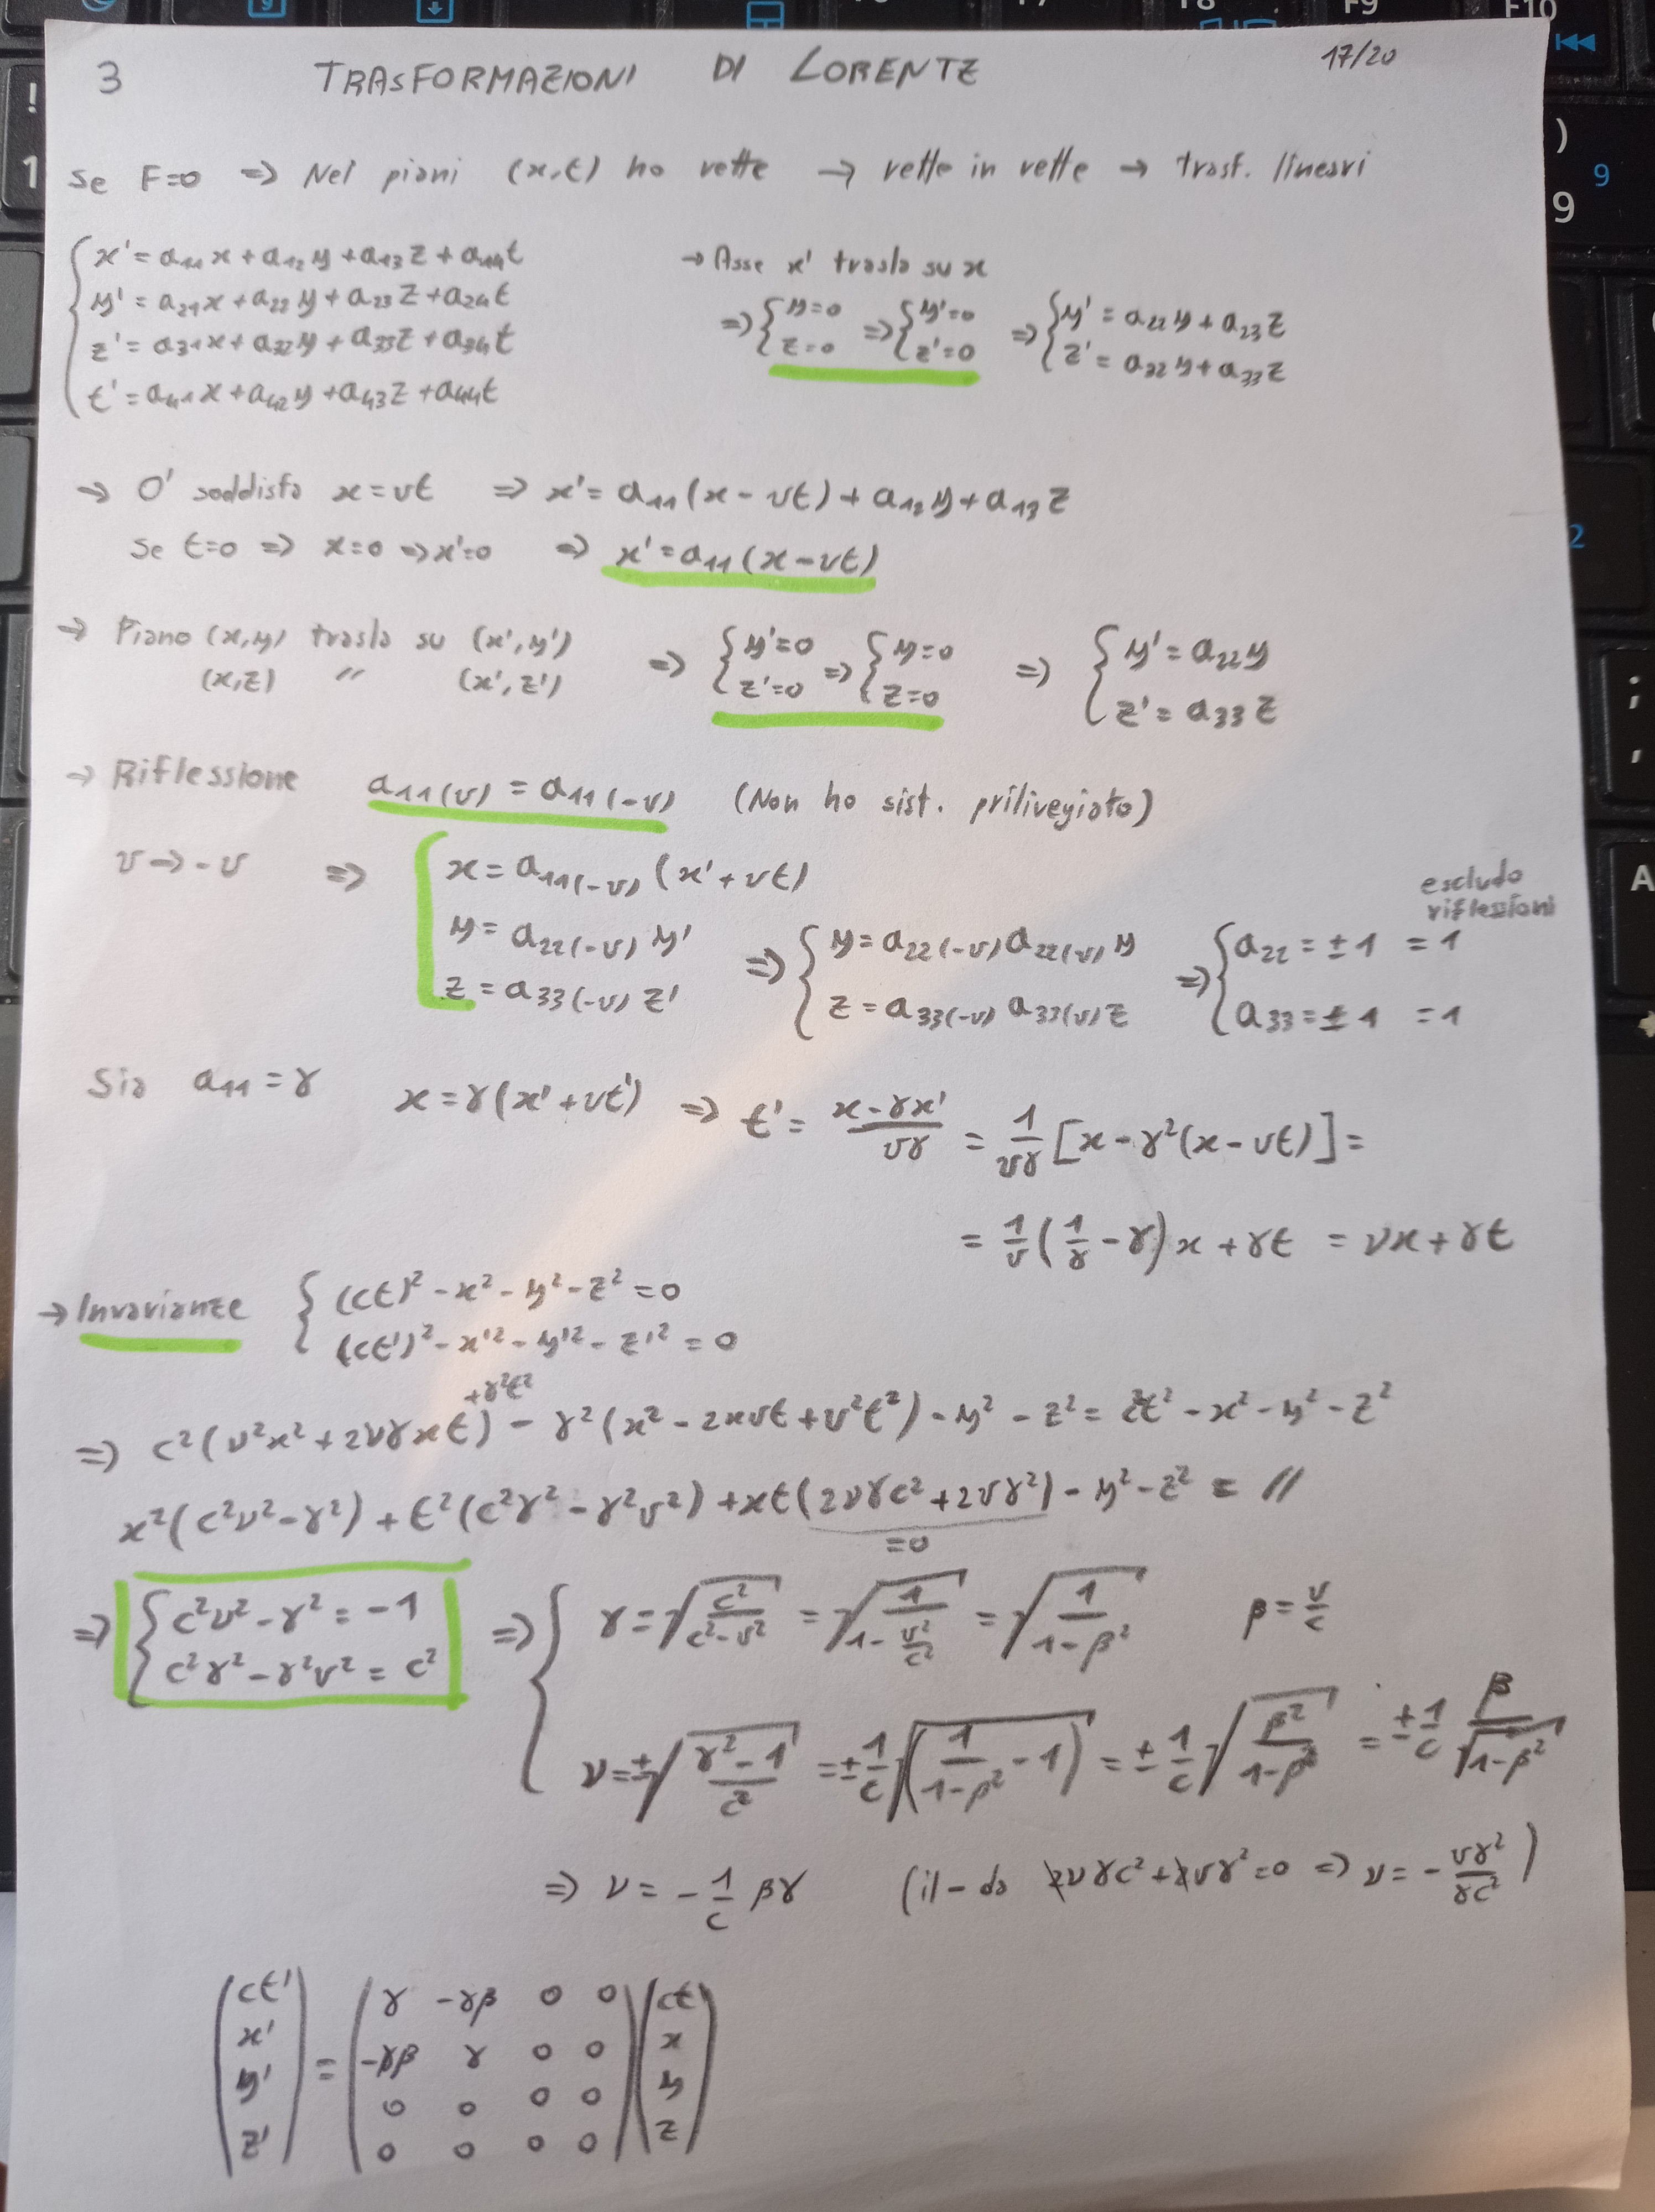 3 TRASFORMAZIONI DI LORENTZ 17/20
Se F=0 => Nei piani (x,t) ho rette → rette in rette → trasf. lineari
x' = a₁₁x + a₁₂y + a₁₃z + a₁₄t
y' = a₂₁x + a₂₂y + a₂₃z + a₂₄t
z' = a₃₁x + a₃₂y + a₃₃z + a₃₄t
t' = a₄₁x + a₄₂y + a₄₃z + a₄₄t
→ Asse x' trasla su x
=> {y=0 => {y'=0 => {y' = a₂₂y + a₂₃z
z=0 z'=0 z' = a₃₂y + a₃₃z
→ O' soddisfa x = vt => x' = a₁₁(x - vt) + a₁₂y + a₁₃z
Se t=0 => x=0 => x'=0 => x' = a₁₁(x - vt)
→ Piano (x,y) trasla su (x',y') => {y'=0 => {y=0 => {y' = a₂₂y
(x,z) " (x',z') z'=0 z=0 z' = a₃₃z
→ Riflessione a₁₁(v) = a₁₁(-v) (Non ho sist. prilivegiato)
v → -v => {x = a₁₁(-v) (x' + vt)
y = a₂₂(-v) y' => {y = a₂₂(-v) a₂₂(v) y => {a₂₂ = ±1 = 1
z = a₃₃(-v) z' z = a₃₃(-v) a₃₃(v) z a₃₃ = ±1 = 1
escludo
riflessioni
Sia a₁₁ = γ x = γ(x' + vt') => t' = (x - γx')/(vγ) = 1/(vγ) [x - γ²(x - vt)] =
= 1/v (1/γ - γ) x + γt = νx + γt
→ Invarianze {(ct)² - x² - y² - z² = 0
(ct')² - x'² - y'² - z'² = 0
=> c²(ν²x² + 2νγxt + γ²t²) - γ²(x² - 2xvt + v²t²) - y² - z² = c²t² - x² - y² - z²
x²(c²ν² - γ²) + t²(c²γ² - γ²v²) + xt(2νγc² + 2vγ²) - y² - z² = //
=0
=> {c²ν² - γ² = -1 => {γ = √(c²/(c² - v²)) = √(1/(1 - v²/c²)) = √(1/(1 - β²)) β = v/c
c²γ² - γ²v² = c²
ν = ±√((γ² - 1)/c²) = ±1/c √(1/(1 - β²) - 1) = ±1/c √(β²/(1 - β²)) = ±1/c β/√(1 - β²)
=> ν = - 1/c βγ (il - da 2νγc² + 2vγ² = 0 => ν = - vγ²/(γc²))
(ct') (γ -γβ 0 0) (ct)
(x') = (-γβ γ 0 0) (x)
(y') (0 0 0 0) (y)
(z') (0 0 0 0) (z)